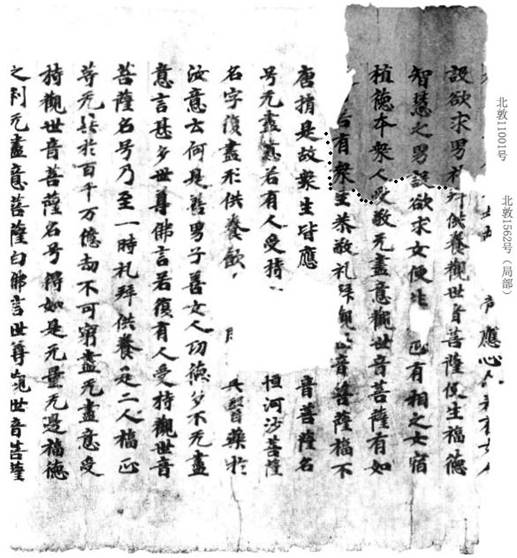 北敦11001号
北敦1562号（局部）
應心
設欲求男礼拜供養觀世音菩薩便生福德
智慧之男設欲求女便生正有相之女宿
植德本衆人受敬无盡意觀世音菩薩有如
有衆生恭敬礼拜觀世音菩薩福不
唐捐是故衆生皆應音菩薩名
号无盡意若有人受持恒河沙菩薩
名字復盡形供養飲具醫藥於
汝意云何是善男子善女人功德多不无盡
意言甚多世尊佛言若復有人受持觀世音
菩薩名号乃至一時礼拜供養是二人福正
等无異於百千万億劫不可窮盡无盡意受
持觀世音菩薩名号得如是无量无邊福德
之利无盡意菩薩白佛言世尊觀世音菩薩